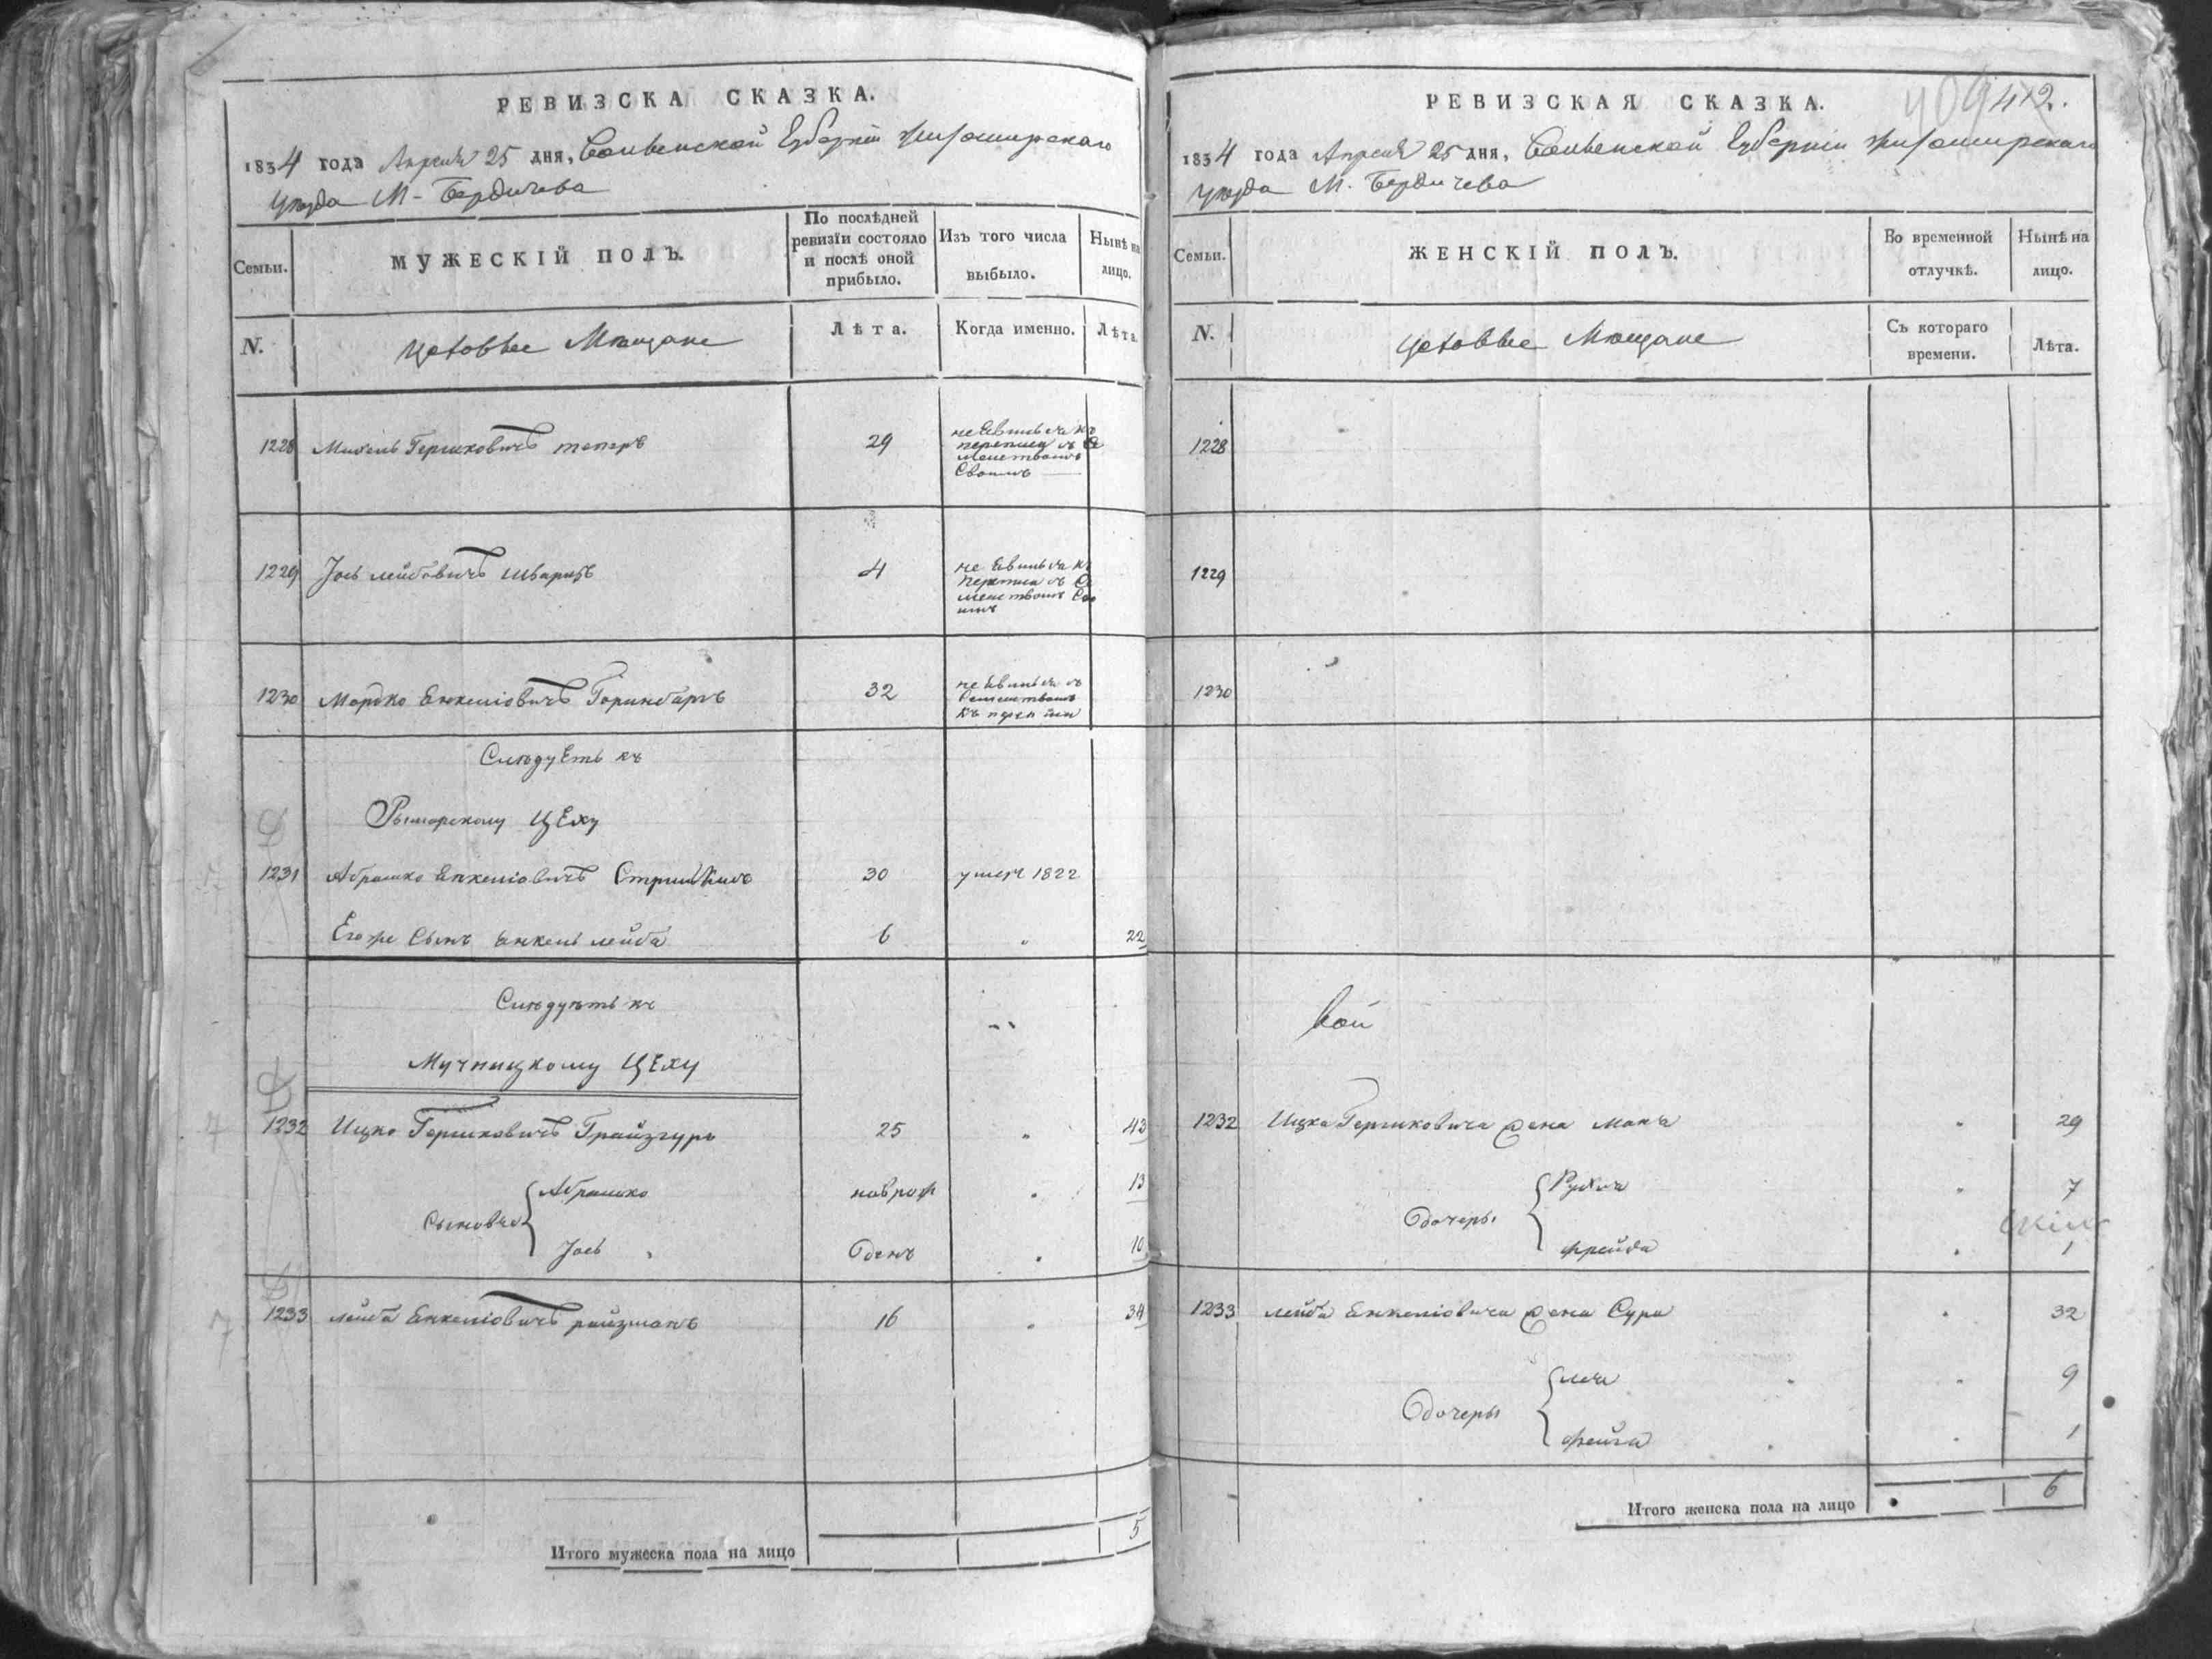 РЕВИЗСКА СКАЗКА.
1834 года Апреля 25 дня, Волынской Губерніи Житомирскаго
Уѣзда М. Бердичева
Семьи.
МУЖЕСКІЙ ПОЛЪ.
По послѣдней ревизїи состояло и послѣ оной прибыло.
Изъ того числа выбыло.
Нынѣ на лицо.
N.
Цеховые Мѣщане
Лѣта.
Когда именно.
Лѣта.
1228 Михель Гершковичъ 29 не евилься къ
переписи съ Се
мействомъ
Своимъ
1229 Јось лейбовичъ шварцъ 4 не евилься къ
переписи съ Се
мействомъ Сво
имъ
1230 Мордко Енкеліовичъ 32 не евилься съ
Семействомъ
къ переписи
СлѣдуЕть къ
Рымарскому ЦЕху
1231 Абрамко Енкеліовичъ 30 умеръ 1822
Егоже Сынъ Енкель лейба 6 " 22
Слѣдуѣть къ
Мучницкому ЦЕху
1232 Ицко Гершковичъ Грайзгуръ 25 " 43
Сыновья { Абрамко новрож " 13
Јось Оденъ " 10
1233 лейба Енкеліовичъ райзманъ 16 " 34
Итого мужеска пола на лицо 5
РЕВИЗСКАЯ СКАЗКА.
409 412.
1834 года Апреля 25 дня, Волынской Губерніи Житомирскаго
Уѣзда М. Бердичева
Семьи.
ЖЕНСКІЙ ПОЛЪ.
Во временной отлучкѣ.
Нынѣ на лицо.
N.
Цеховые Мѣщане
Съ котораго времени.
Лѣта.
1228
1229
1230
вой
1232 Ицка Гершковича жена " 29
Одочеры { Рухля " 7
фрейда " 1
1233 лейба Енкеліовича жена Сура " 32
Одочеры { " 9
фейга " 1
Итого женска пола на лицо 6